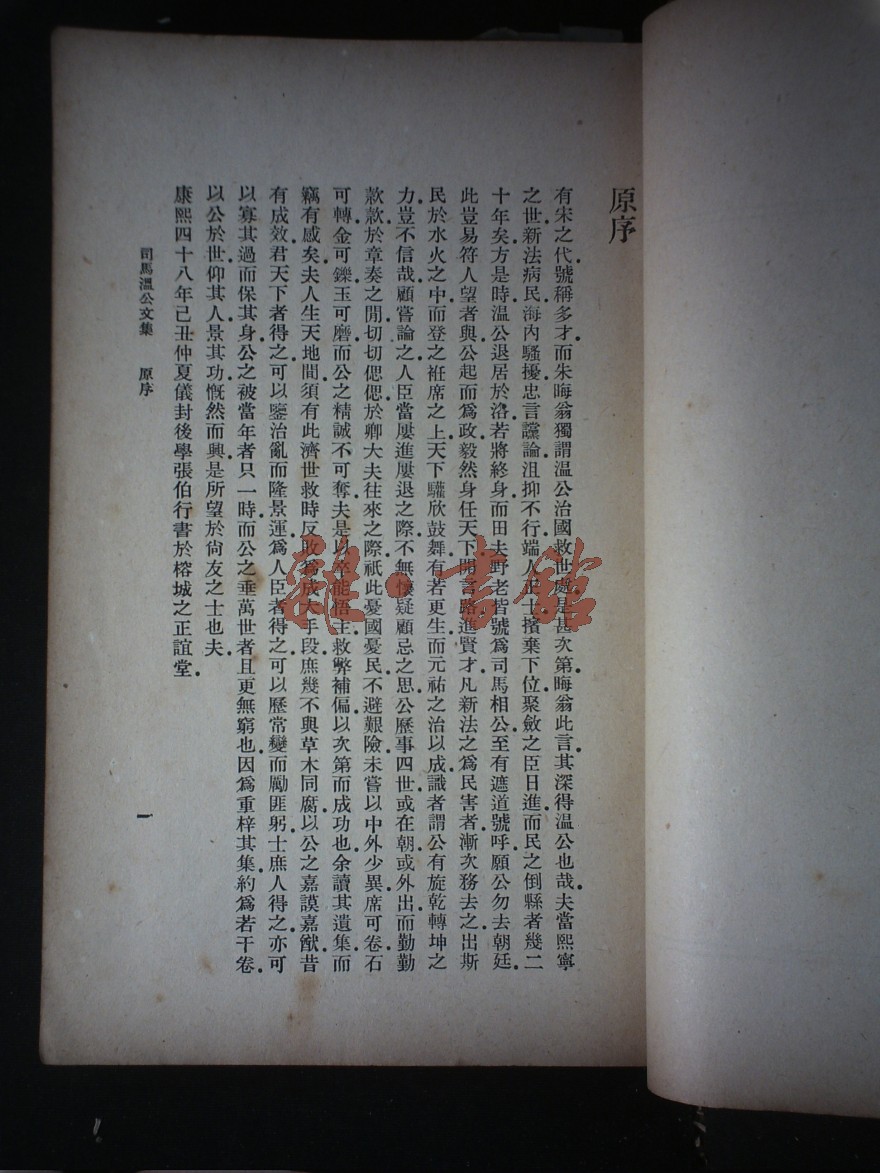 原序
有宋之代號稱多才而朱晦翁獨謂温公治國救世處是甚次第晦翁此言其深得温公也哉夫當熙寧
之世新法病民海內騷擾忠言讜論沮抑不行端人正士擯棄下位聚斂之臣日進而民之倒縣者幾二
十年矣方是時温公退居於洛若將終身而田夫野老皆號爲司馬相公至有遮道號呼願公勿去朝廷
此豈易符人望者與公起而爲政毅然身任天下開言路進賢才凡新法之爲民害者漸次務去之出斯
民於水火之中而登之袵席之上天下驩欣鼓舞有若更生而元祐之治以成識者謂公有旋乾轉坤之
力豈不信哉顧嘗論之人臣當屢進屢退之際不無懷疑顧忌之思公歷事四世或在朝或外出而勤勤
款款於章奏之閒切切偲偲於卿大夫往來之際祇此憂國憂民不避艱險未嘗以中外少異席可卷石
可轉金可鑠玉可磨而公之精誠不可奪夫是以卒能悟主救弊補偏以次第而成功也余讀其遺集而
竊有感矣夫人生天地間須有此濟世救時反敗爲成大手段庶幾不與草木同腐以公之嘉謨嘉猷昔
有成效君天下者得之可以鑒治亂而隆景運爲人臣者得之可以歷常變而勵匪躬士庶人得之亦可
以寡其過而保其身公之被當年者只一時而公之垂萬世者且更無窮也因爲重梓其集約爲若干卷
以公於世仰其人景其功慨然而興是所望於尙友之士也夫
康熙四十八年己丑仲夏儀封後學張伯行書於榕城之正誼堂
司馬溫公文集 原序
一
雒書館